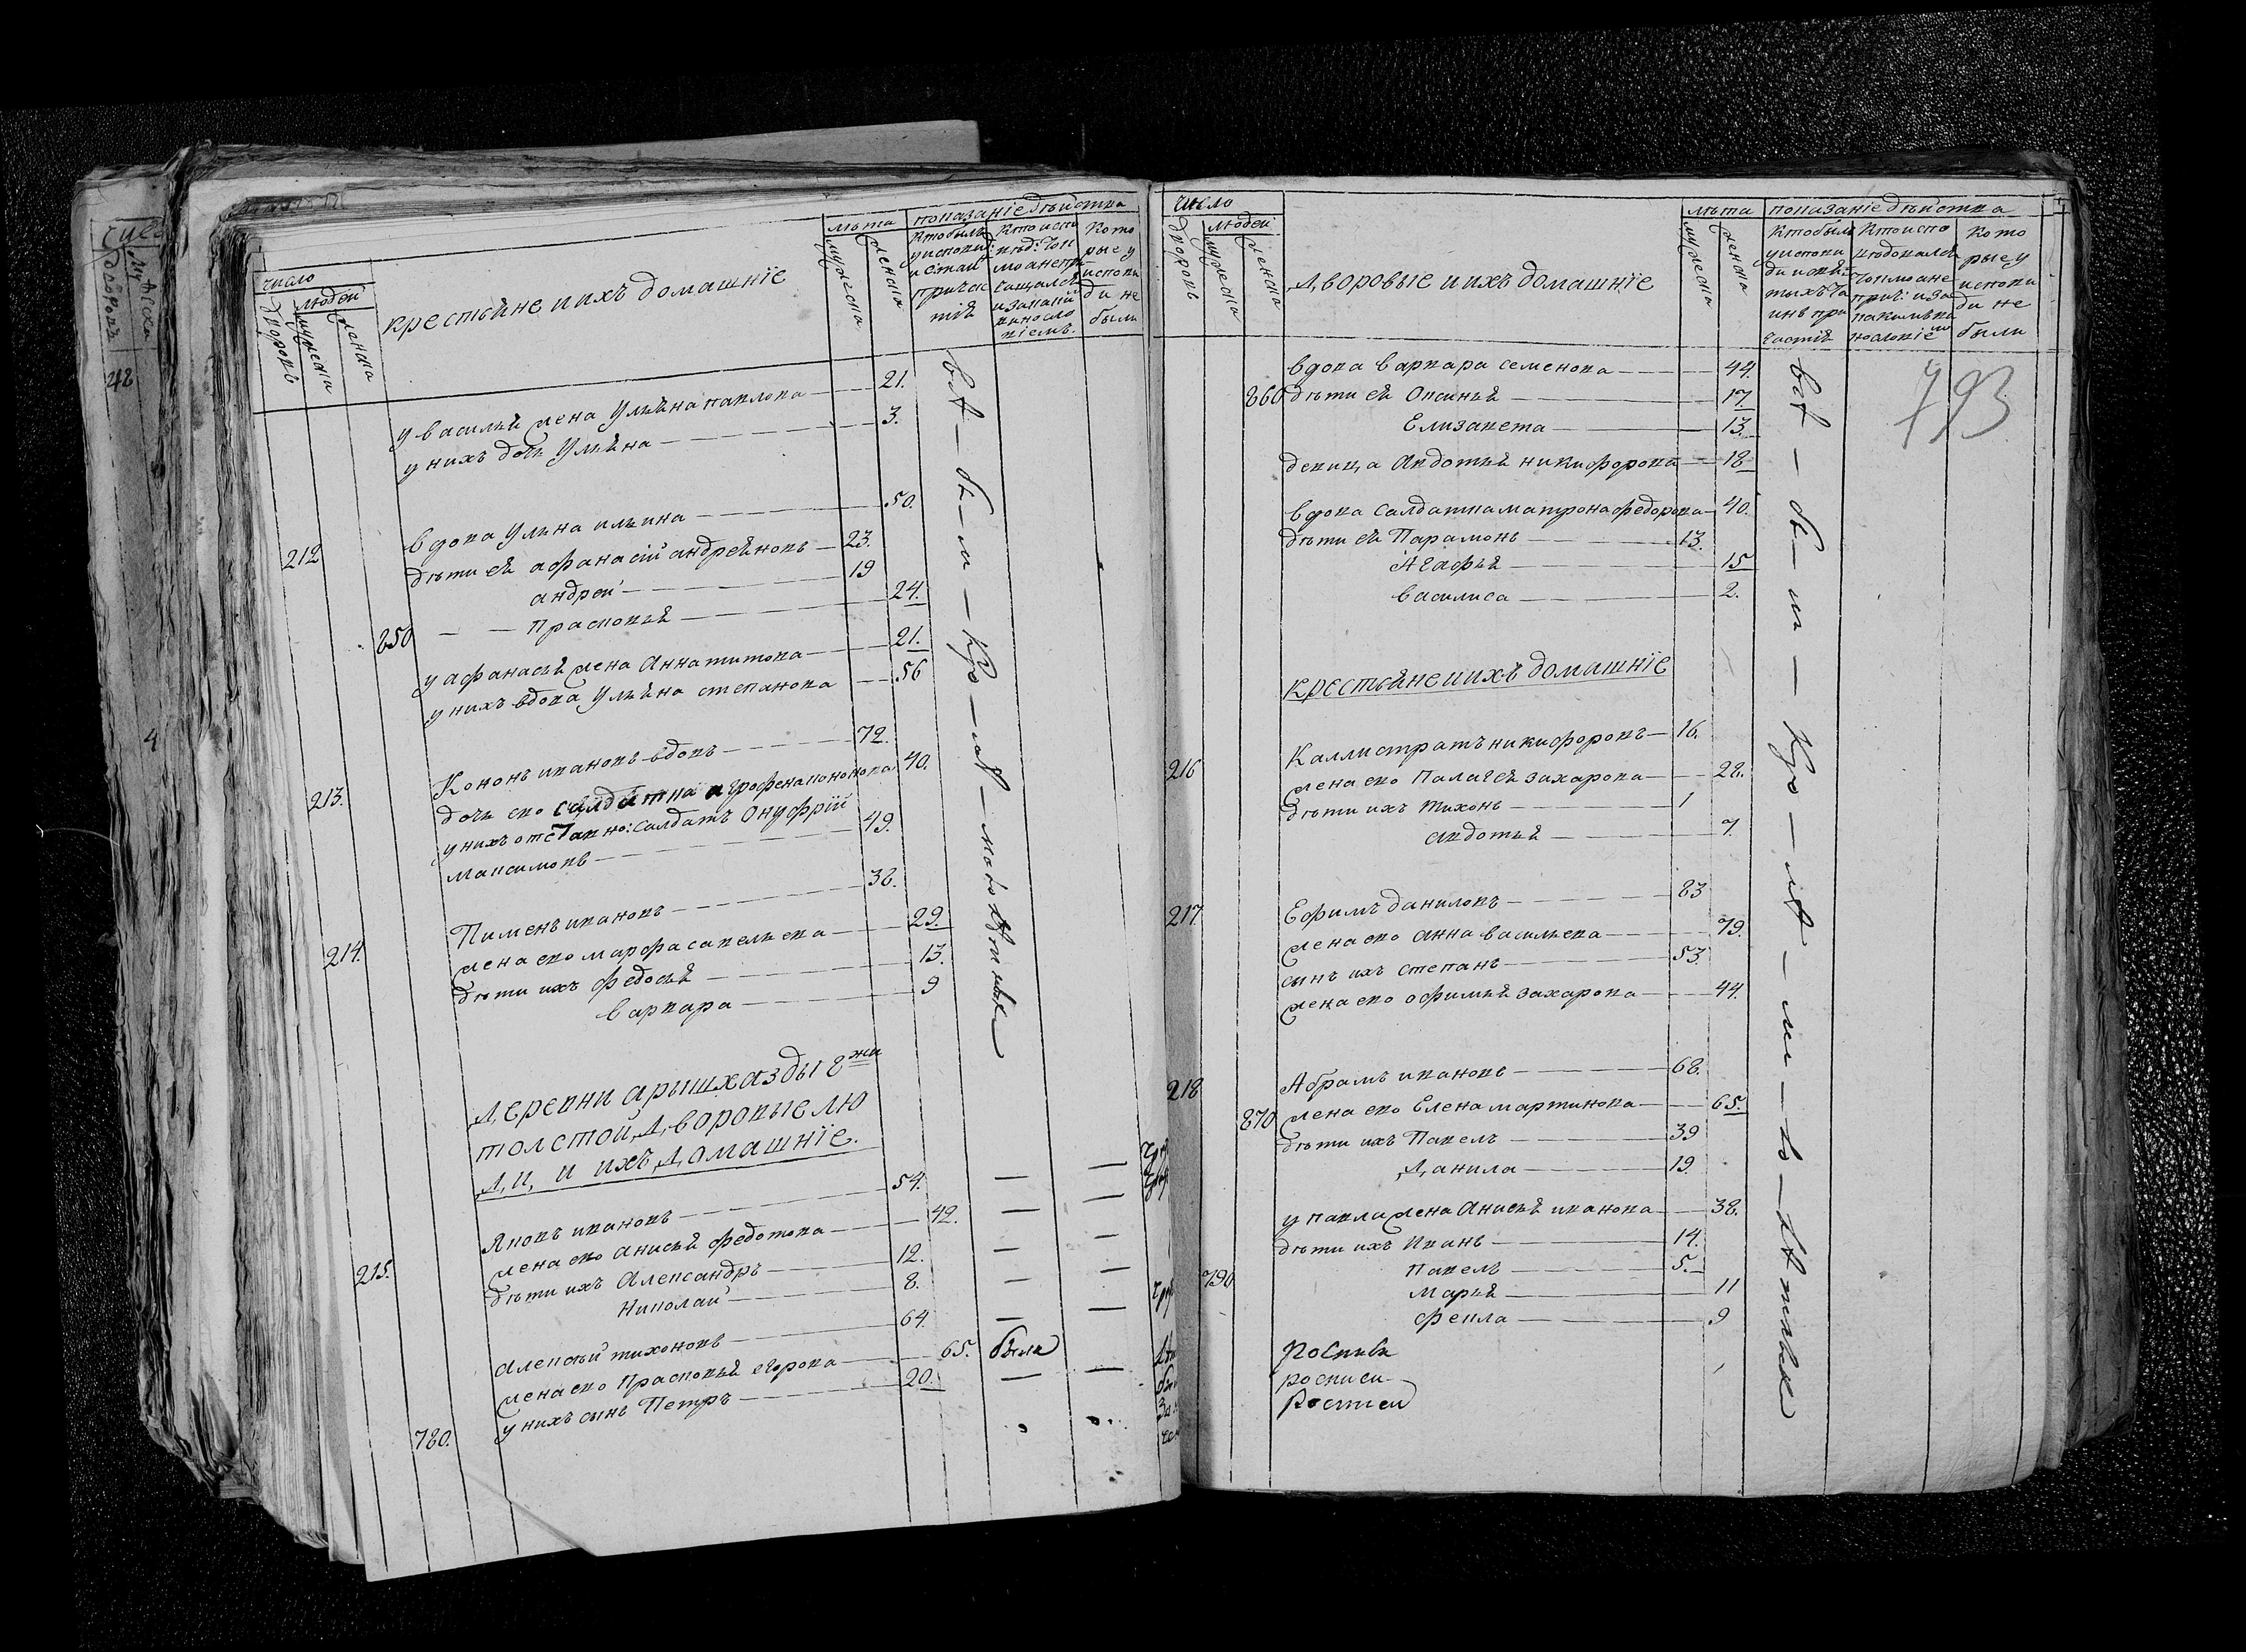 число
людей
дворовъ
мужеска
женска
крестьяне и ихъ домашніе
лѣта
мужеска
женска
показаніе дѣйства
кто былъ
у исповѣди
и с̃таи
причас
тія
кто испо
вѣд: чоп
мо а не при
чащался
кото
рые у
испове
ди не
были
у василья жена Ульяна павлова — 21.
у нихъ дочь Ульяна — 3.
212
вдова Улина ильина — 50.
дѣти ея афанасій андреяновъ — 23.
андрей — 19
850 — — Прасковья — 24.
у афанасья жена Анна титова — 21.
у нихъ вдова Ульяна степанова — 56
213.
Кононъ ивановъ вдовъ — 72.
дочь ево салдатка агрофена кононова 40.
у нихъ отставно: салдатъ Онуфрій
максимовъ — 49.
214.
Пименъ ивановъ — 38.
жена ево марфа савельева — 29.
дѣти ихъ федосья — 13.
варвара — 9
деревни арышхазды г жи
толстой, дворовые лю
ди, и ихъ домашніе.
215.
Яковъ ивановъ — 54.
жена ево анисья федотова — 42.
дѣти ихъ Александръ — 12.
Николай — 8.
алексѣй тихоновъ — 64.
жена ево Прасковья егорова — 65. была
780. у нихъ сынъ Петръ — 20.
всѣ — бы — ли — кро — мѣ — малолѣтныхъ
число
людей
дворовъ
мужеска
женска
дворовые и ихъ домашніе
лѣта
мужеска
женска
показаніе дѣйства
кто былъ
у исповѣ
ди и свя
тыхъ та
инъ при
частія
кто испо
вѣдовался
кото
рые у
исповѣ
ди не
были
793
вдова варвара семенова — 44.
860 дѣти ея Оксинья — 17
Елизавета — 13.
девица авдотья никифорова — 18
вдова салдатка матрона федорова — 40.
дѣти ея Парамонъ — 13.
Агафья — 15
василиса — 2.
крестьяне и ихъ домашніе
216
Каллистратъ никифоровъ — 16.
жена ево Палагея захарова — 28.
дѣти ихъ тихонъ — 1
авдотья — 7.
217
Ефимъ даниловъ — 83
жена ево анна васильева — 79.
сынъ ихъ степанъ — 53.
жена ево офимья захарова — 44.
218
Абрамъ ивановъ — 68.
870 жена ево Елена мартинова — 65.
дѣти ихъ Павелъ — 39
данила — 19.
у павла жена анисья иванова — 38.
дѣти ихъ Иванъ — 14.
790 павелъ — 5.
марья — 11
фекла — 9
росписи
росписи
всѣ — бы — ли — кро — мѣ — ма — ло — лѣтныхъ